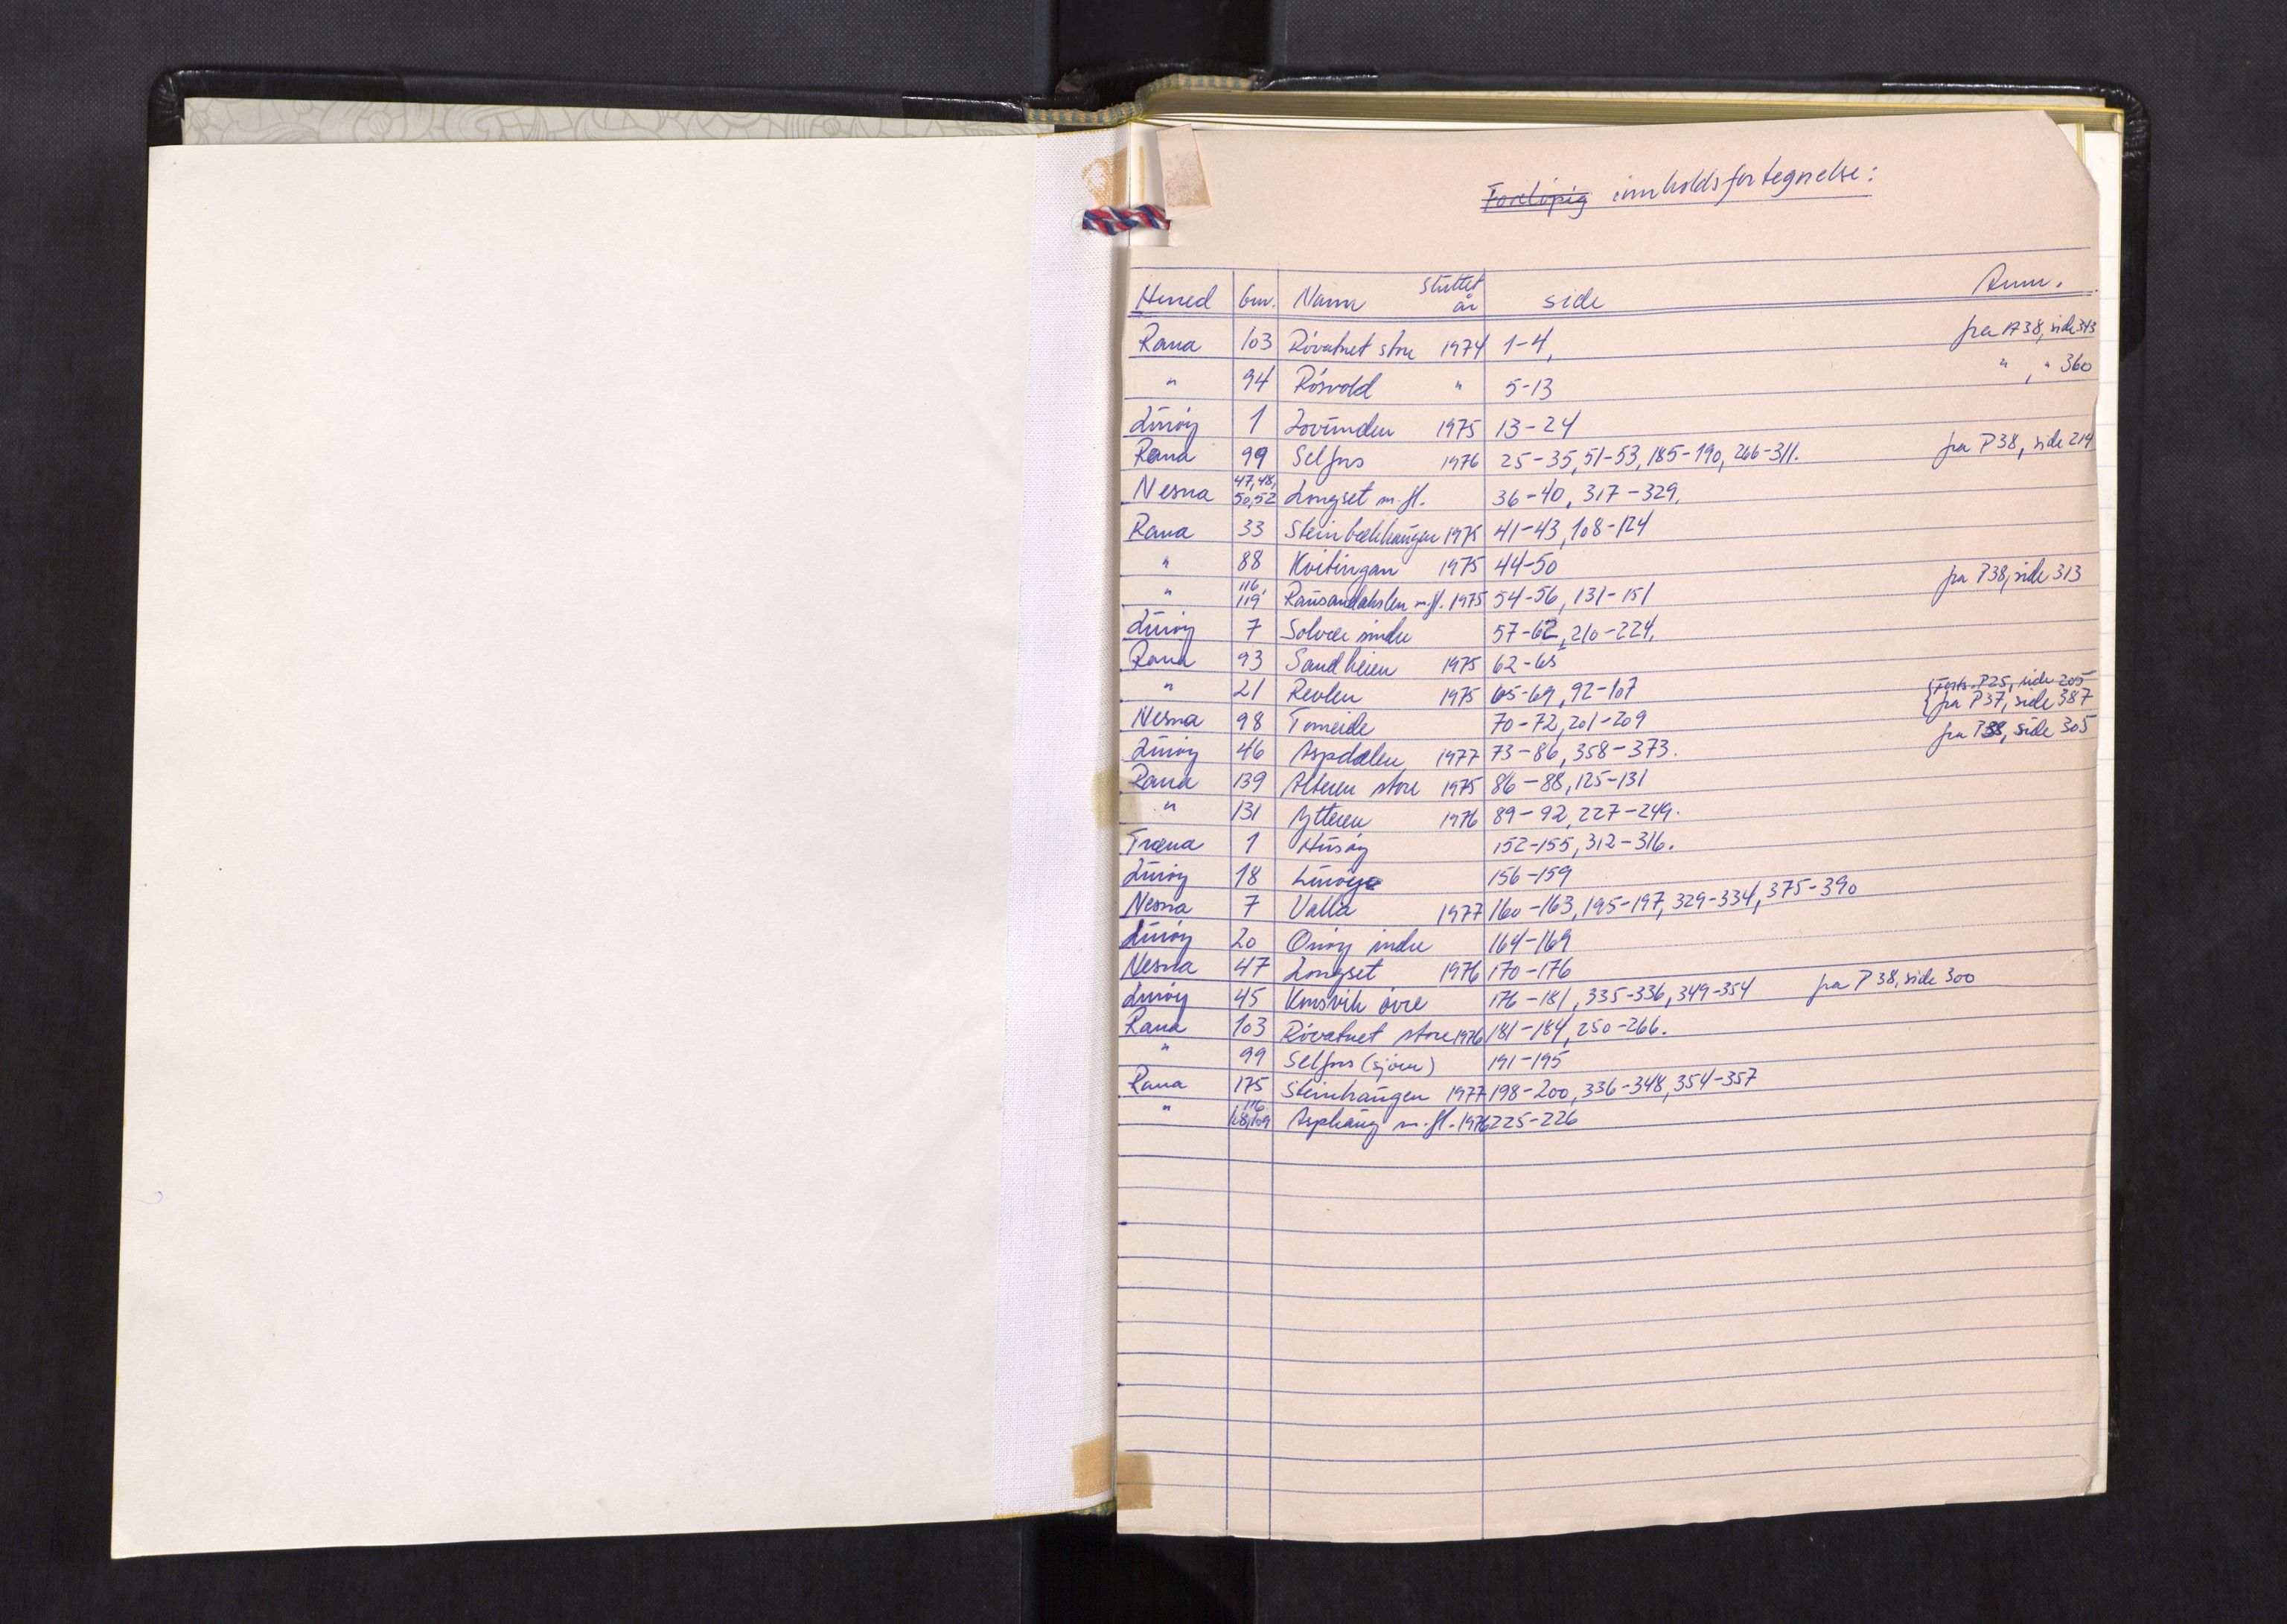 Foreløpig innholdsfortegnelse:
Herred Gnr. Navn Sluttet år side Anm.
Rana 103 Røvatnet store 1974 1-4, fra P38, side 343
" 94 Røsvold " 5-13 " , " 360
Lurøy 1 Lovunden 1975 13-24
Rana 99 Selfors 1976 25-35, 51-53, 185-190, 266-311. fra P38, side 214
Nesna 47, 48, 50, 52 Longset m.fl. 36-40, 317-329.
Rana 33 Steinbekkhaugen 1975 41-43, 108-124
" 88 Kvitingan 1975 44-50
" 116, 119 Rausandakslen m.fl. 1975 54-56, 131-151 fra P38, side 313
Lurøy 7 Solvær indre 57-62, 210-224.
Rana 93 Sandheien 1975 62-65
" 21 Revlen 1975 65-69, 92-107 {Forts. P25, side 205 fra P37, side 387
Nesna 98 Tomeide 70-72, 201-209
Lurøy 46 Aspdalen 1977 73-86, 358-373. fra P38, side 305
Rana 139 Alteren store 1975 86-88, 125-131
" 131 Ytteren 1976 89-92, 227-249.
Træna 1 Husøy 152-155, 312-316.
Lurøy 18 Lurøy 156-159
Nesna 7 Valla 1977 160-163, 195-197, 329-334, 375-390
Lurøy 20 Onøy indre 164-169
Nesna 47 Longset 1976 170-176
Lurøy 45 øvre 176-181, 335-336, 349-354 fra P38, side 300
Rana 103 Røvatnet store 1976 181-184, 250-266.
" 99 Selfors (sjøen) 191-195
Rana 175 Steinhaugen 1977 198-200, 336-348, 354-357
" 116 109 Asphaug m.fl. 1976 225-226